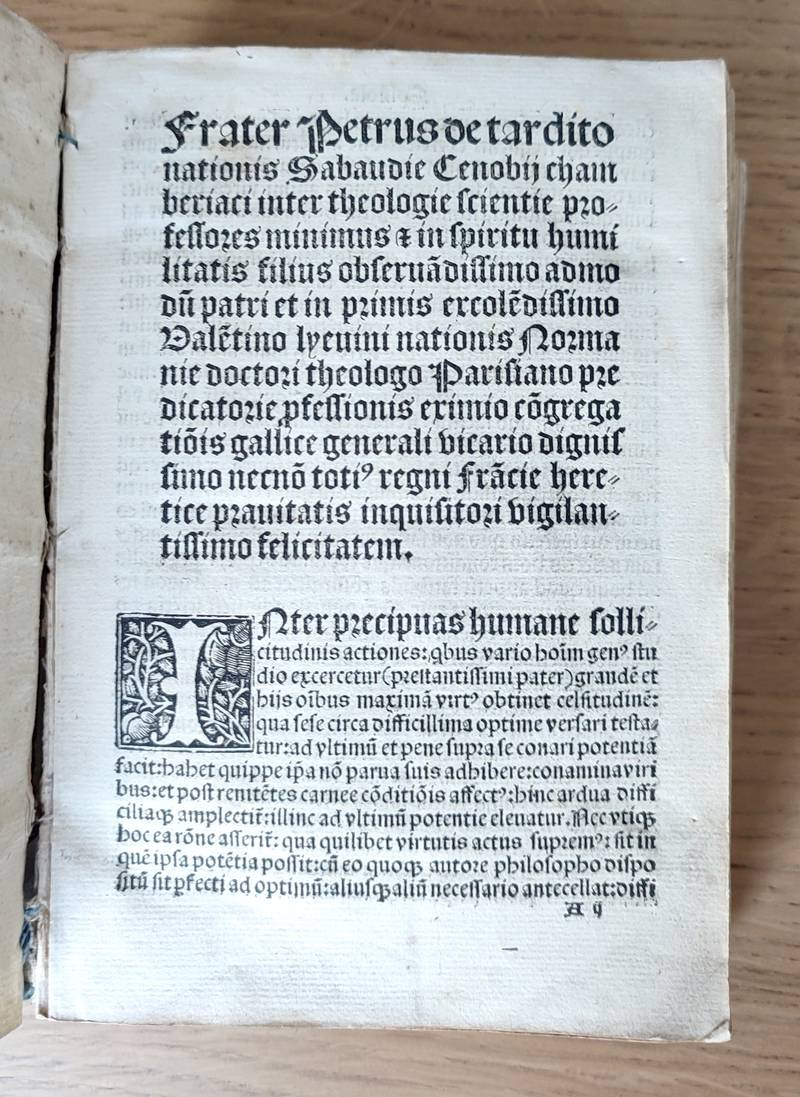 Frater Petrus de tardito
nationis Sabaudie Cenobij cham
beriaci inter theologie scientie pro-
fessores minimus ⁊ in spiritu humi
litatis filius obseruādissimo admo
dū patri et in primis excolēdissimo
Valētino lyeuini nationis Norma
nie doctori theologo Parisiano pre
dicatorie ꝓfessionis eximio cōgrega
tiōis gallice generali vicario dignis
simo necnō totiꝰ regni Frācie here-
tice prauitatis inquisitori vigilan-
tissimo felicitatem.
INter precipuas humane solli-
citudinis actiones: qbus vario hoīm genꝰ stu
dio excercetur (prestantissimi pater) grandē et
hijs oībus maximā virtꝰ obtinet celsitudinē:
qua sese circa difficillima optime versari testa-
tur: ad vltimū et pene supra se conari potentiā
facit: habet quippe ip̄a nō parua suis adhibere: conamina viri
bus: et post renitētes carnee cōditiōis affectꝰ: hinc ardua diffi
ciliaqꝫ amplectir̄: illinc ad vltimū potentie eleuatur. Nec vtiqꝫ
hoc ea rōne asserir̄: qua quilibet virtutis actus supremꝰ: sit in
quē ipsa potētia possit: cū eo quoqꝫ autore philosopho dispo
sitū sit ꝑfecti ad optimū: aliusqꝫ aliū necessario antecellat: diffi
A ij